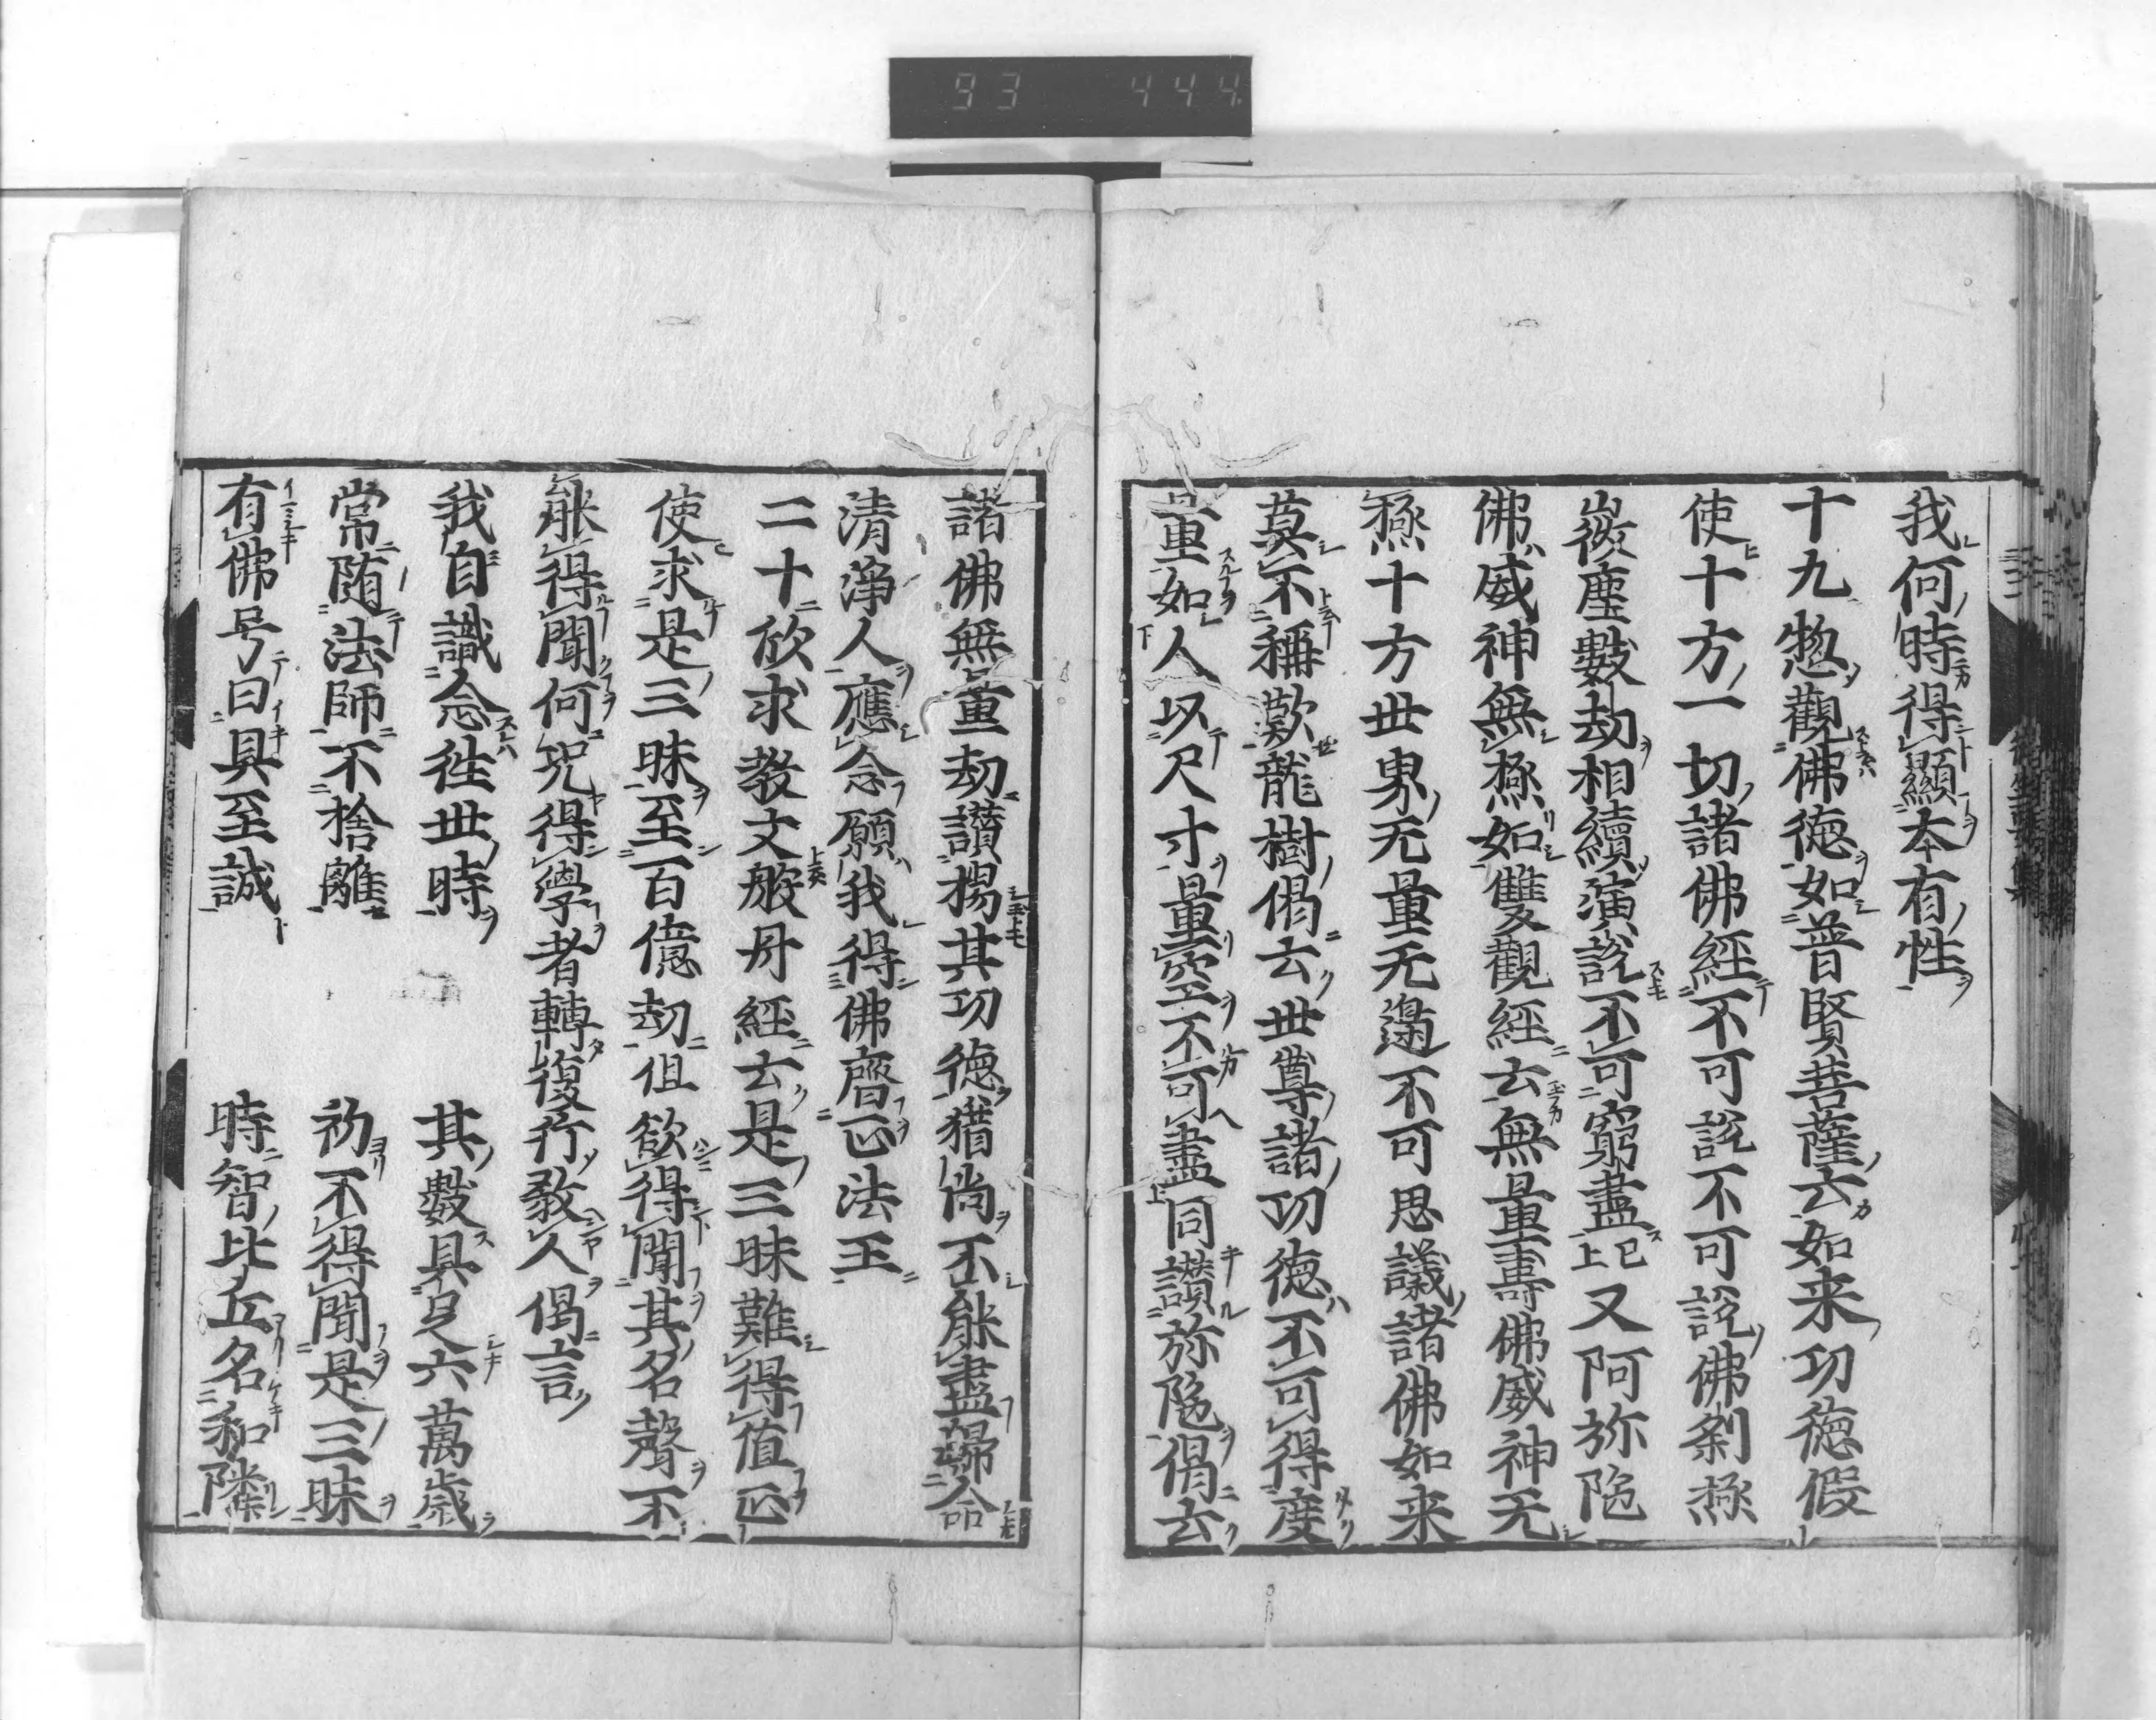 93 444
我何時得顯本有性
十九惣觀佛德如普賢菩薩云如来功德假
使十方一切諸佛經不可說不可說佛刹極
微塵數劫相續演說不可窮盡已上又阿弥陀
佛威神無極如雙觀經云無量壽佛威神无
極十方世界无量无邊不可思議諸佛如来
莫不稱歎龍樹偈云世尊諸功德不可得度
量如人以尺寸量空不可盡同讃弥陀偈云
諸佛無量劫讃揚其功德猶尚不能盡歸命
清淨人應念願我得佛齊正法王
二十欣求教文般舟經云是三昧難得值正
使求是三昧至百億劫但欲得聞其名聲不
能得聞何况得學者轉復行教人偈言
我自識念往世時 其數具足六萬歲
常随法師不捨離 初不得聞是三昧
有佛号曰具至誠 時智比丘名和隣